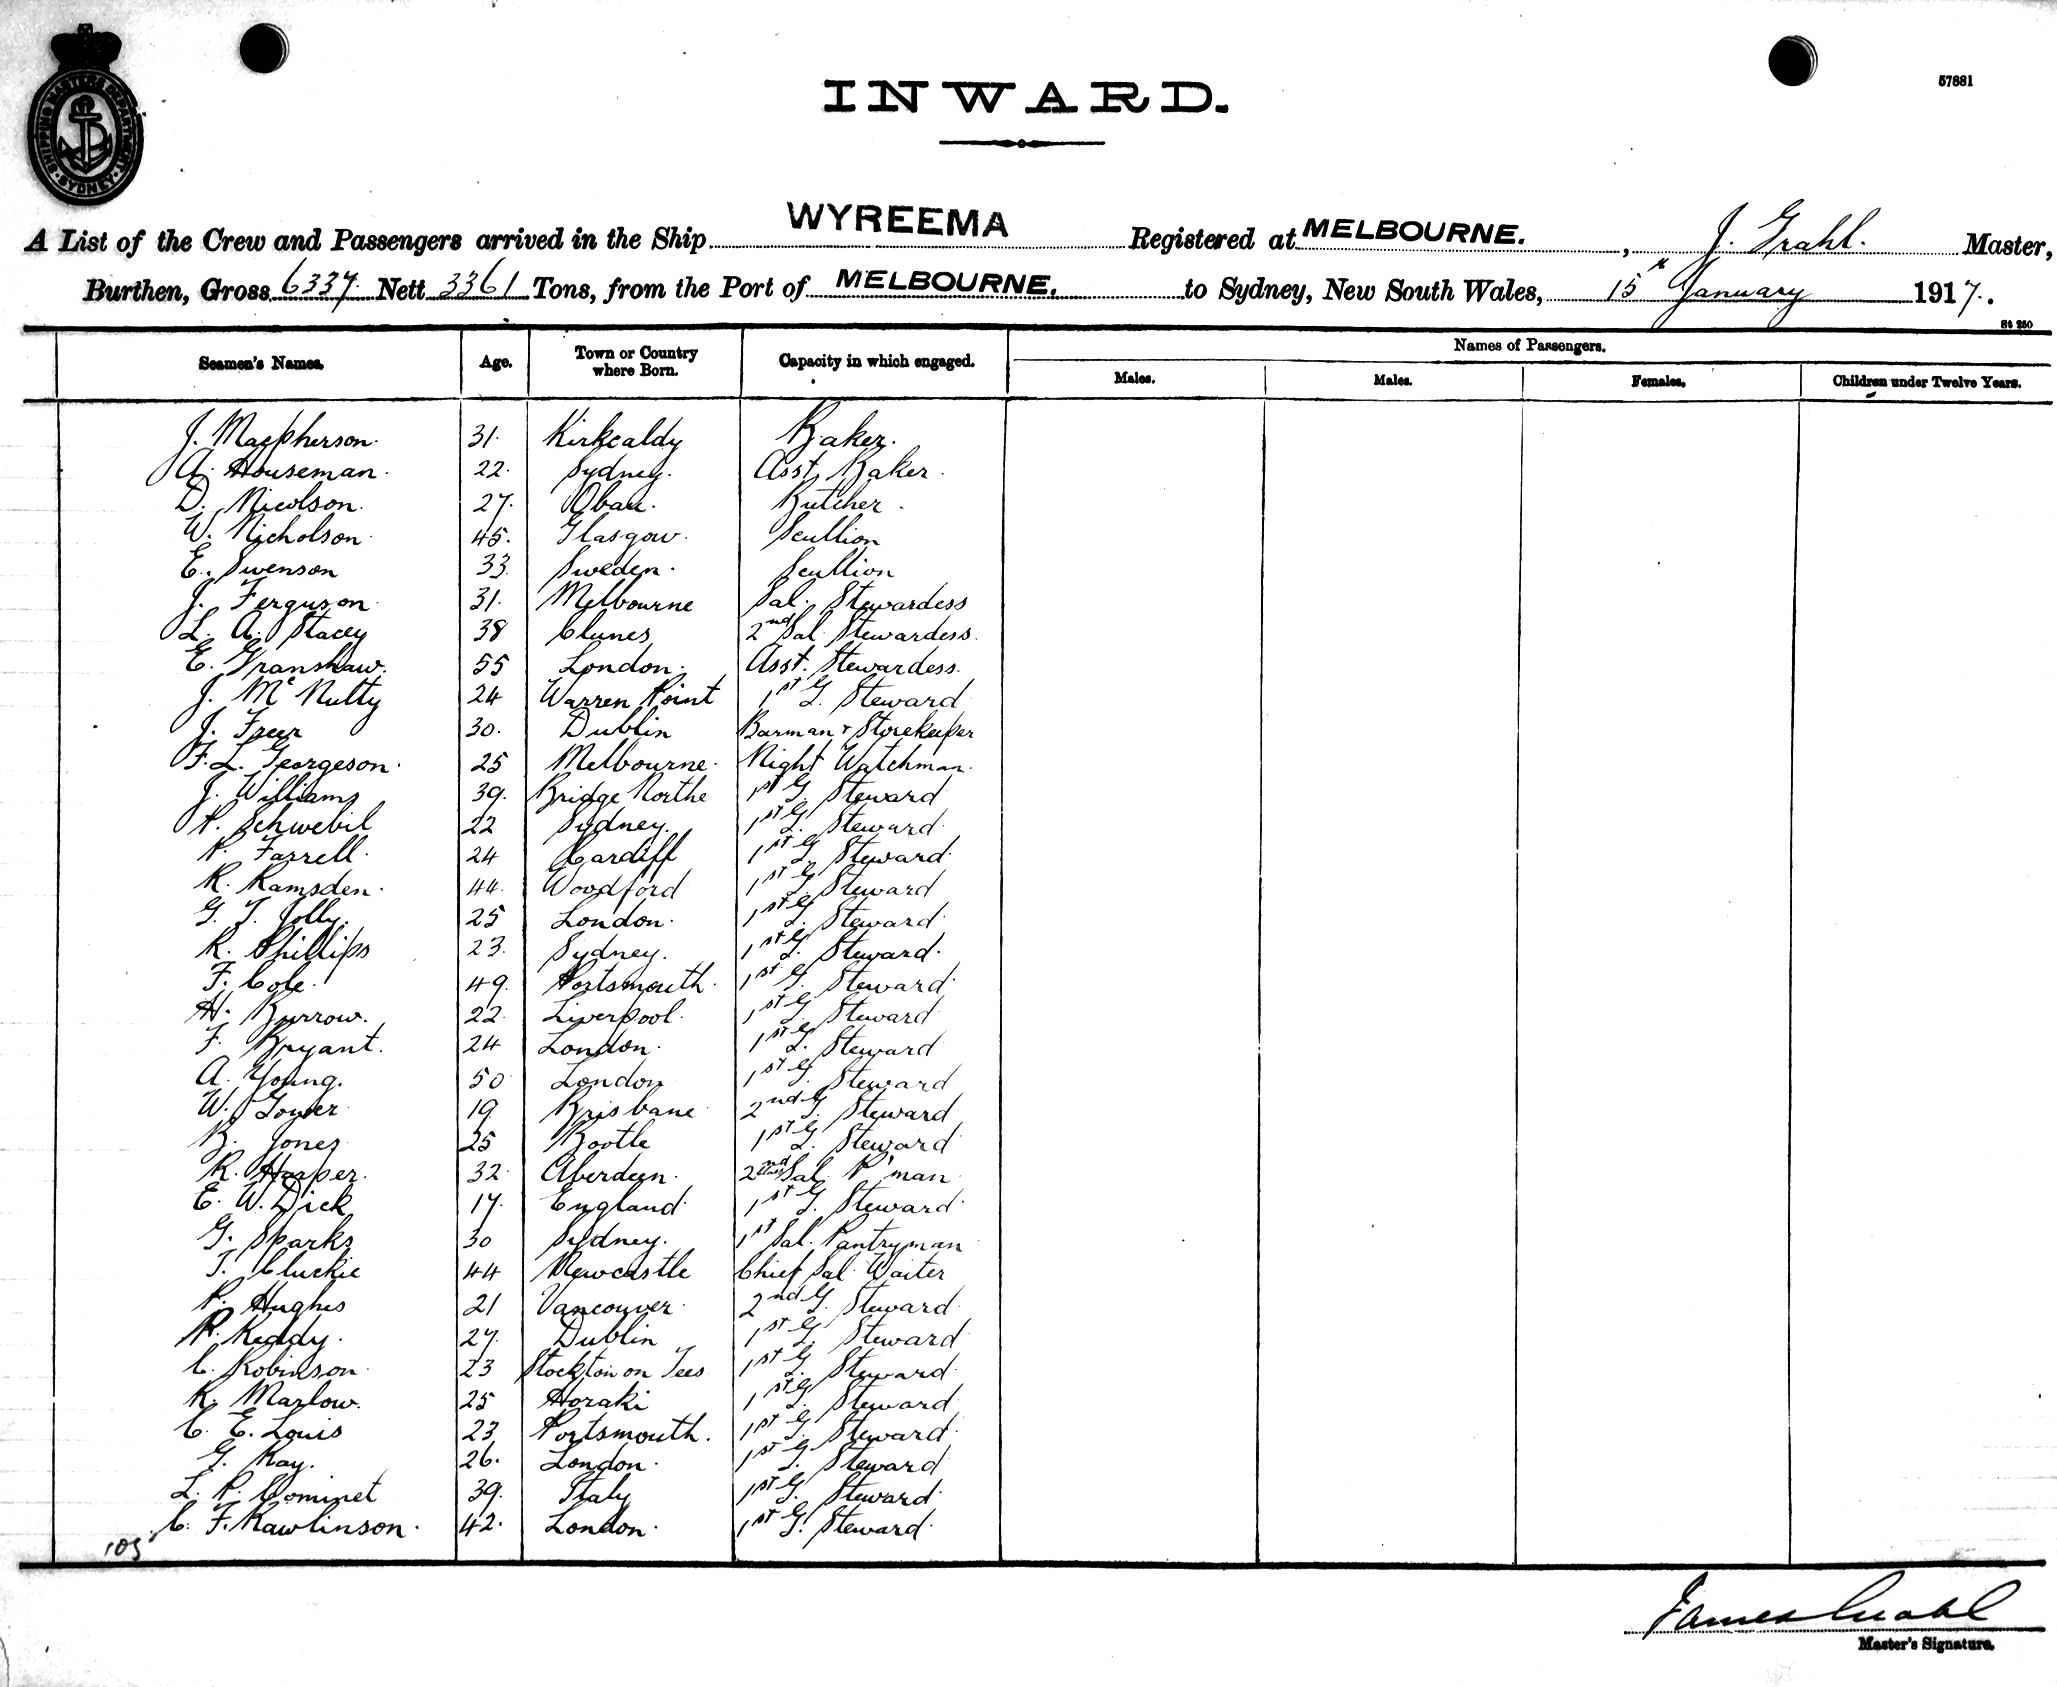 SHIPPING MASTERS DEPARTMENT
SYDNEY
57881
INWARD.
A List of the Crew and Passengers arrived in the Ship WYREEMA Registered at MELBOURNE. , J. Grahl. Master,
Burthen, Gross 6337. Nett 3361 Tons, from the Port of MELBOURNE. to Sydney, New South Wales, 15th January 1917.
St 250
Seamen's Names. Age. Town or Country where Born. Capacity in which engaged. Names of Passengers.
Males. Males. Females. Children under Twelve Years.
J. Macpherson. 31. Kirkcaldy Baker.
A. Houseman. 22. Sydney. Asst. Baker.
D. Nicolson. 27. Oban. Butcher.
W. Nicholson 45. Glasgow. Scullion
E. Swenson 33 Sweden. Scullion
J. Ferguson 31. Melbourne Sal. Stewardess
L. A. Stacey 38 Clunes 2nd Sal. Stewardess.
E. Granshaw. 55 London. Asst. Stewardess.
J. McNulty 24 Warren Point 1st G. Steward
J. Freer 30. Dublin Barman & Storekeeper
F. L. Georgeson. 25 Melbourne. Night Watchman.
J. Williams 39. Bridge Northe 1st G. Steward
P. Schwebil 22 Sydney. 1st G. Steward
P. Farrell. 24 Cardiff 1st G. Steward
R. Ramsden. 44. Woodford 1st G. Steward
G. T. Jolly. 25 London. 1st G. Steward
R. Phillips 23. Sydney. 1st G. Steward.
F. Cole. 49. Portsmouth. 1st G. Steward.
H. Burrow. 22. Liverpool. 1st G. Steward
F. Bryant. 24 London. 1st G. Steward
A. Young. 50 London 1st G. Steward
W. Gower 19 Brisbane 2nd G. Steward
B. Jones 25 Bootle 1st G. Steward
R. Harper. 32. Aberdeen. 2nd Sal. P'man
E. W. Dick 17. England. 1st G. Steward.
G. Sparks 30 Sydney. 1st Sal. Pantryman
T. Cluckie 44 Newcastle Chief Sal. Waiter
P. Hughes 21 Vancouver. 2nd G. Steward.
P. Reddy. 27. Dublin 1st G. Steward
C. Robinson. 23 Stockton on Tees 1st G. Steward.
R. Marlow. 25 Horaki 1st G. Steward
C. E. Louis 23 Portsmouth. 1st G. Steward.
G. Kay. 26. London. 1st G. Steward
L. P. Cominet 39. Italy 1st G. Steward.
C. F. Rawlinson. 42. London. 1st G. Steward.
105
James Grahl
Master's Signature.